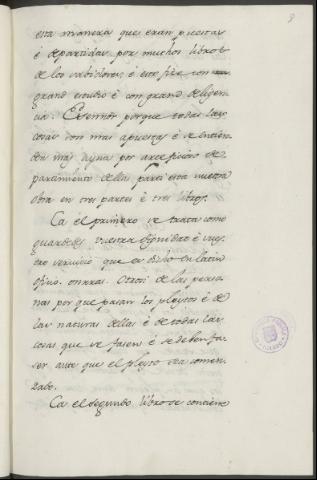 8
esta manera que eran puestas
é departidas por muchos libros
de los sabidores, é esto fise con
grand estudio é con grand deligen
cia: E Sennor porque todas las
cosas son mas apuestas é se entien
den mas ayna por artefiçio de
partimiento dellas parti esta vuestra
obra en tres partes é tres libros.
Ca el primero se trata como
guardedes vuestra dignidat é vues
tro servicio que es dicho en latin
ofiio. Otrosi de las perso
nas por que pasan los pleytos é de
las naturas dellas é de todas las
cosas que se fasen é se deben fa
ser ante que el pleyto sea comen
zado.
Ca el segundo libro se contiene